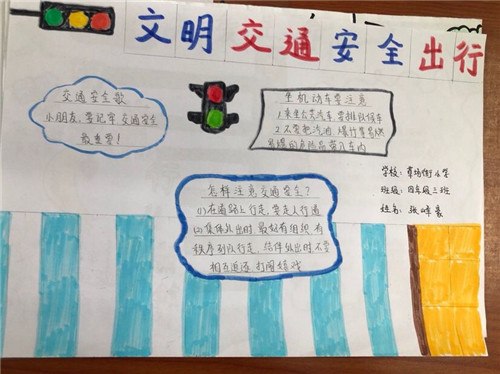 文明交通安全出行
交通安全歌
小朋友,要记牢,交通安全
最重要!
坐机动车要注意
1.乘坐公共汽车,要排队候车
2.不要把汽油、爆竹等易燃
易爆的危险品带入车内
学校:草场街小学
班级:四年级三班
姓名:张
怎样注意交通安全?
(1)在道路上行走,要走人行道
(2)集体外出时,最好有组织,有
秩序列队行走,结伴外出时,不要
相互追逐,打闹嬉戏